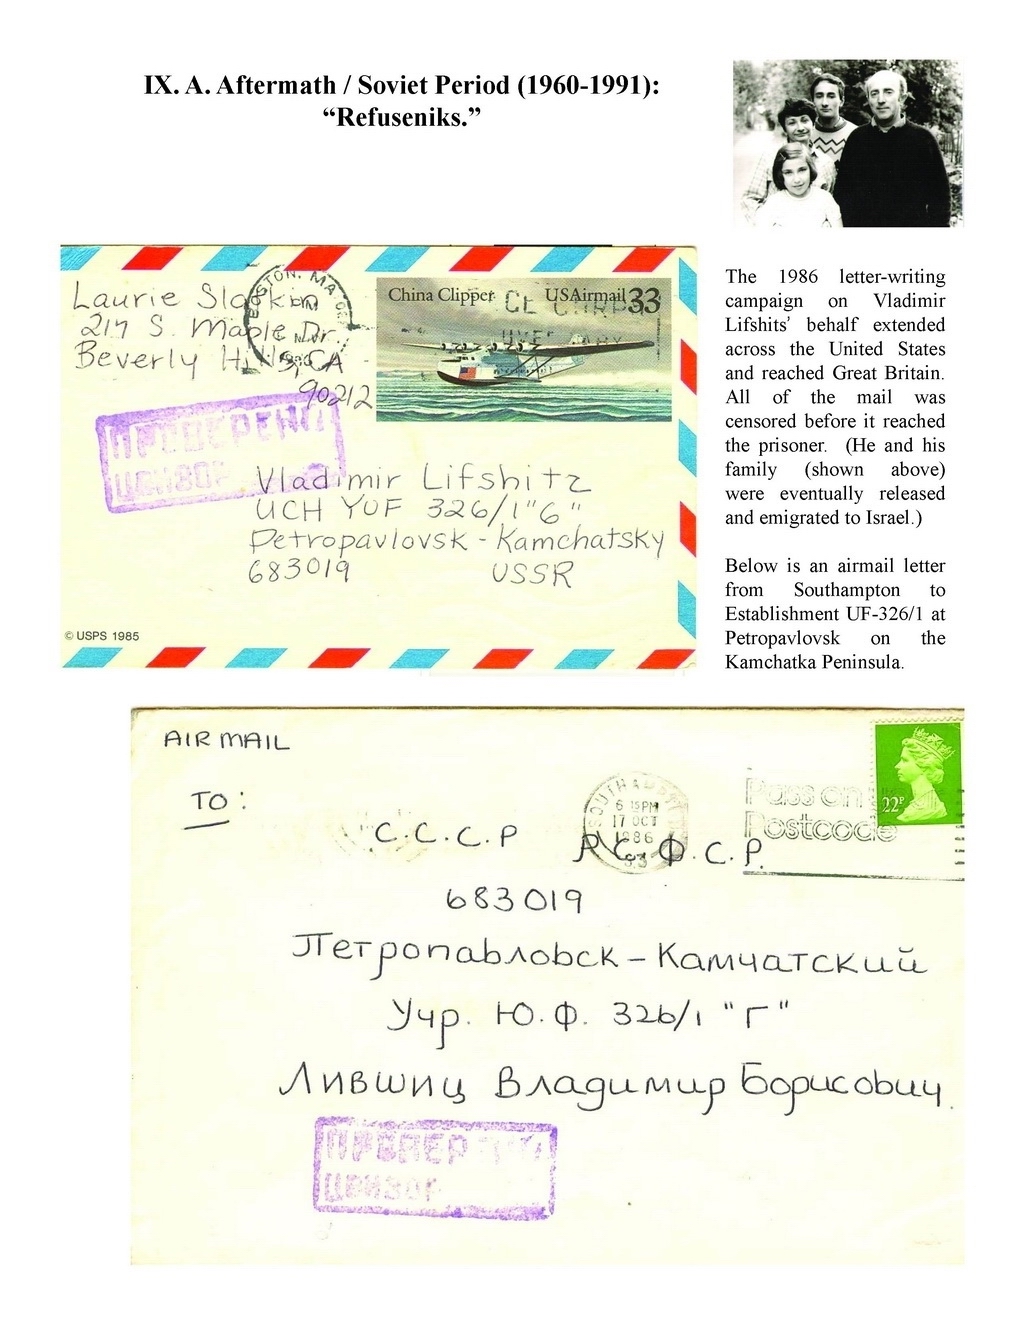 IX. A. Aftermath / Soviet Period (1960-1991):
“Refuseniks.”
The 1986 letter-writing
campaign on Vladimir
Lifshits’ behalf extended
across the United States
and reached Great Britain.
All of the mail was
censored before it reached
the prisoner. (He and his
family (shown above)
were eventually released
and emigrated to Israel.)
Below is an airmail letter
from Southampton to
Establishment UF-326/1 at
Petropavlovsk on the
Kamchatka Peninsula.
Laurie Slatkin
217 S. Maple Dr
Beverly Hills, CA
90212
BOSTON, MA
PM
China Clipper
USAirmail 33
ПРОВЕРЕНО
ЦЕНЗОР
Vladimir Lifshitz
UCH YUF 326/1 "6"
Petropavlovsk - Kamchatsky
683019 USSR
© USPS 1985
AIR MAIL
TO:
SOUTHAMPTON
6 15PM
17 OCT
1986
Pass on
Postcode
22P
С.С.С.Р Р.С.Ф.С.Р.
683019
Петропавловск - Камчатский
Учр. Ю.Ф. 326/1 "Г"
Лившиц Владимир Борисович.
ЦЕНЗОР